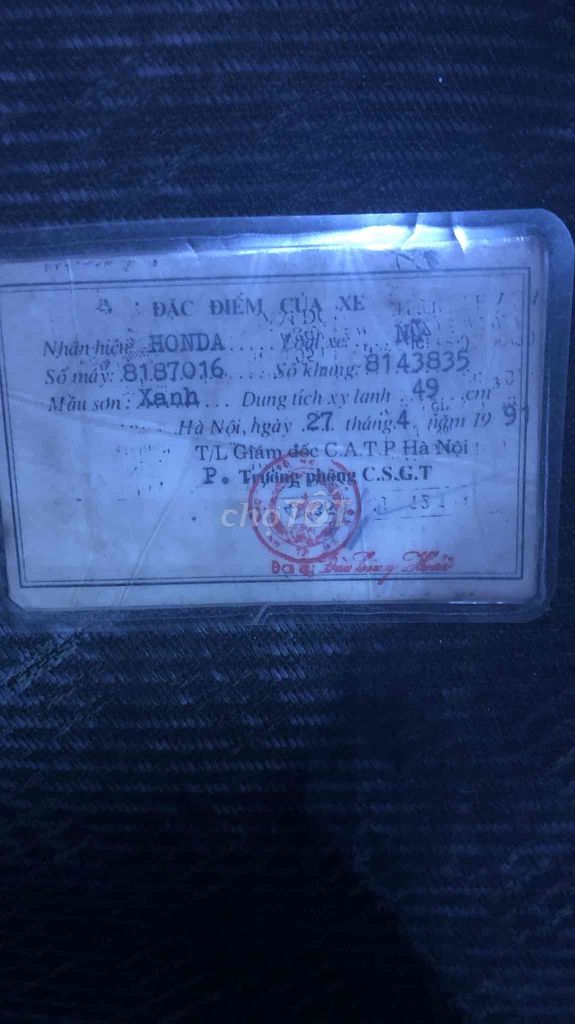 ĐẶC ĐIỂM CỦA XE
Nhãn hiệu: HONDA Loại xe: Nữ
Số máy: 8187016 Số khung: 8143835
Mầu sơn: Xanh Dung tích xy lanh 49 cm3
Hà Nội, ngày 27 tháng 4 năm 1991
T/L Giám đốc C.A.T.P Hà Nội
P. Trưởng phòng C.S.G.T
choTỐT